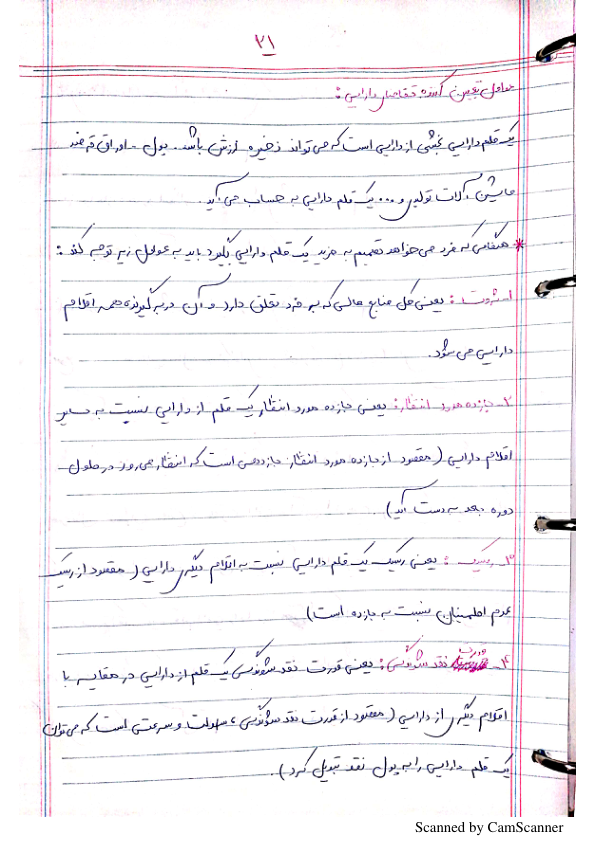 ۲۱
عوامل تعیین کننده تقاضای دارایی :
یک قلم دارایی بخشی از دارایی است که می تواند ذخیره ارزش باشد. پول - اوراق قرضه
ماشین آلات تولید و ... یک قلم دارایی به حساب می آید.
* هنگامی که فرد می خواهد تصمیم به خرید یک قلم دارایی بگیرد باید به عوامل زیر توجه کند :
۱- ثروت : یعنی کل منابع مالی که به فرد تعلق دارد و آن دربرگیرنده همه اقلام
دارایی می شود.
۲- بازده مورد انتظار : یعنی بازده مورد انتظار یک قلم از دارایی نسبت به سایر
اقلام دارایی ( مقصود از بازده مورد انتظار بازدهی است که انتظار می رود در طول
دوره بعد به دست آید )
۳- ریسک : یعنی ریسک یک قلم دارایی نسبت به اقلام دیگر دارایی ( مقصود از ریسک
عدم اطمینان نسبت به بازده است )
۴- قدرت نقد شوندگی : یعنی قدرت نقد شوندگی یک قلم از دارایی در مقایسه با
اقلام دیگر از دارایی ( مقصود از قدرت نقد شوندگی ، سهولت و سرعتی است که می توان
یک قلم دارایی را به پول نقد تبدیل کرد ).
Scanned by CamScanner